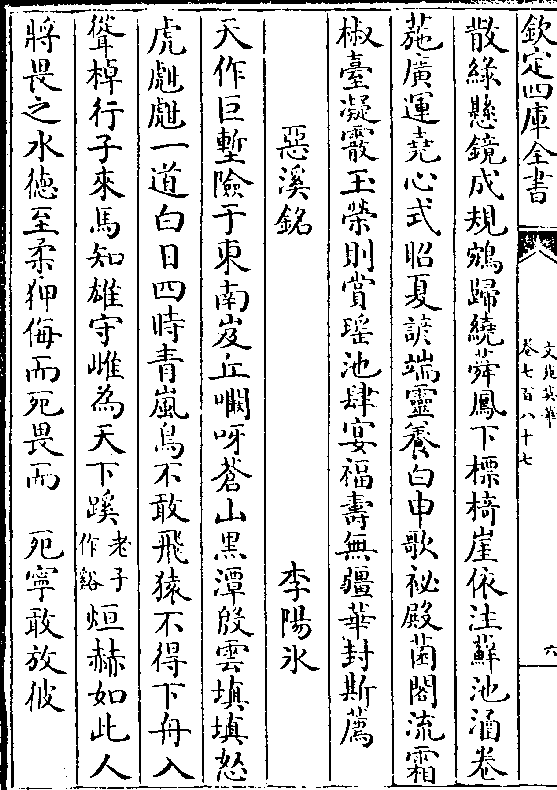 欽定四庫全書
文苑英華
卷七百八十七
六
散緑懸鏡成規鵷歸繞蕣鳳下標椅崖依注蘚池涵卷
葹廣運堯心式昭夏諺端靈養白申歌祕殿菌閣流霜
椒臺凝霰玉榮則賞瑶池肆宴福壽無疆華封斯薦
惡溪銘
李陽氷
天作巨塹險于東南岌丘嘂呀蒼山黒潭殷雲填填怒
虎甝甝一道白日四時青嵐鳥不敢飛猿不得下舟人
聳棹行子來馬知雄守雌為天下蹊老子作谿烜赫如此人
將畏之水德至柔狎侮而死畏而　死寧敢放彼